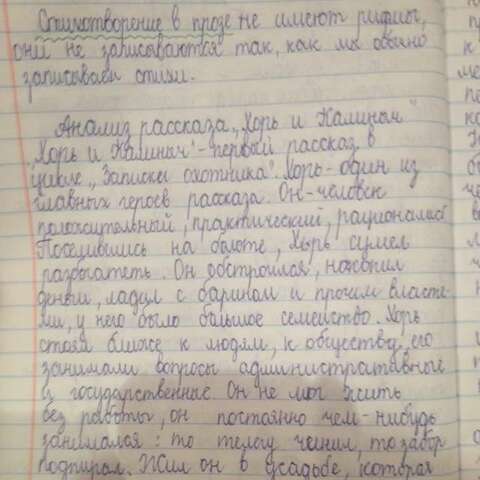 Стихотворение в прозе не имеют рифмы,
они не записываются так, как мы обычно
записываем стихи.
Анализ рассказа „Хорь и Калиныч"
„Хорь и Калиныч" - первый рассказ в
цикле „Записки охотника". Хорь - один из
главных героев рассказа. Он - человек
положительный, практический, рационалист
Поселившись на болоте, Хорь сумел
разбогатеть. Он обстроился, накопил
деньги, ладил с барином и прочими властя-
ми, у него было большое семейство. Хорь
стоял ближе к людям, к обществу, его
занимали вопросы административные
и государственные Он не мог жить
без работы, он постоянно чем-нибудь
занимался: то телегу чинил, то забор
подпирал. Жил он в усадьбе, которая